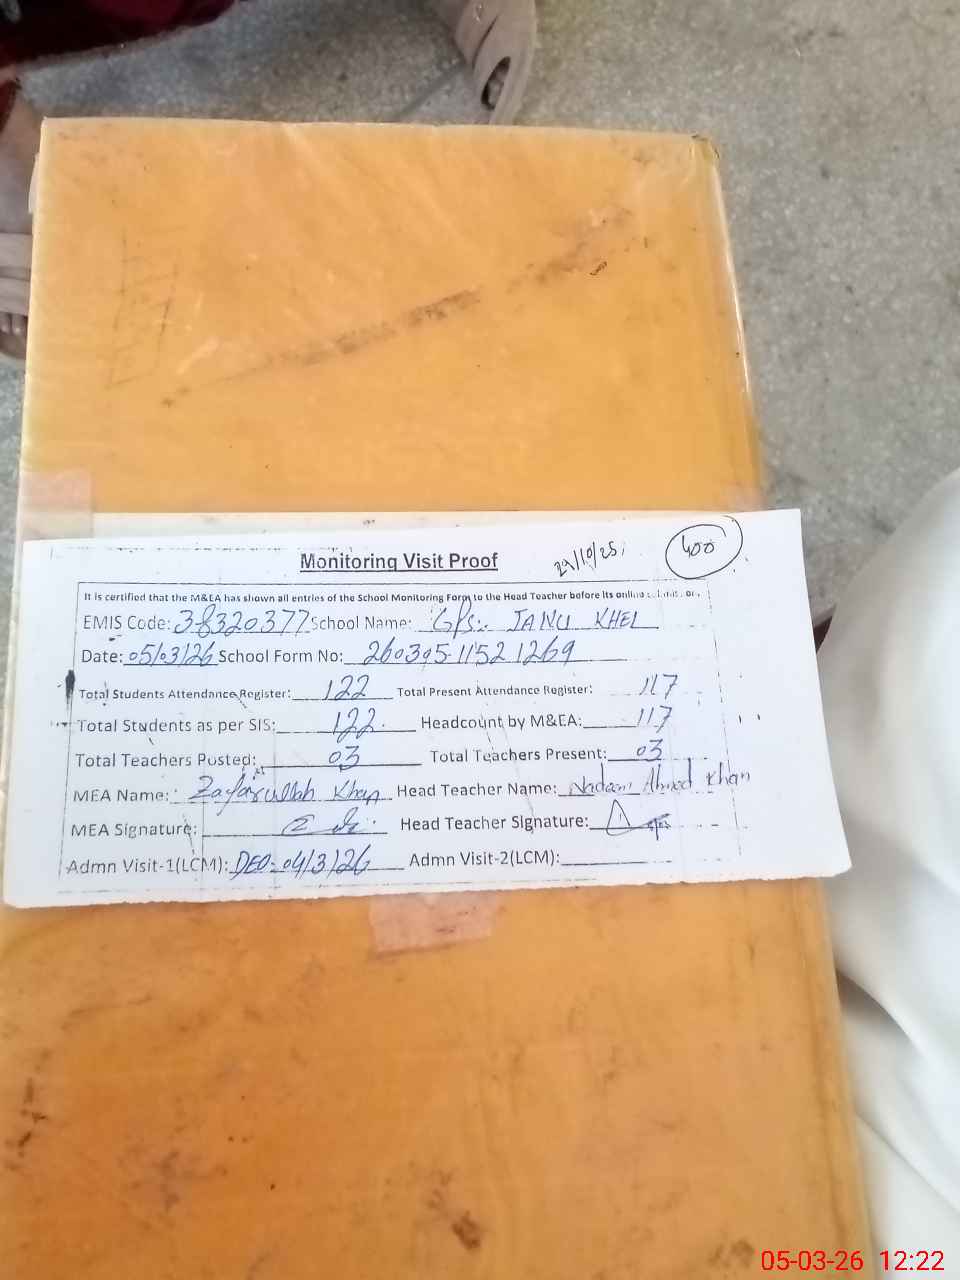 Monitoring Visit Proof
29/10/25
400
It is certified that the M&EA has shown all entries of the School Monitoring Form to the Head Teacher before its online
EMIS Code: 38320377 School Name: GPS. JANU KHEL
Date: 05/03/26 School Form No: 260305-1152 1269
Total Students Attendance Register: 122 Total Present Attendance Register: 117
Total Students as per SIS: 122. Headcount by M&EA: 117
Total Teachers Posted: 03 Total Teachers Present: 03
MEA Name: Zafarullah Khan Head Teacher Name: Nadeem Ahmed Khan
MEA Signature: Head Teacher Signature:
Admn Visit-1(LCM): DEO-04/3/26 Admn Visit-2(LCM):
05-03-26 12:22